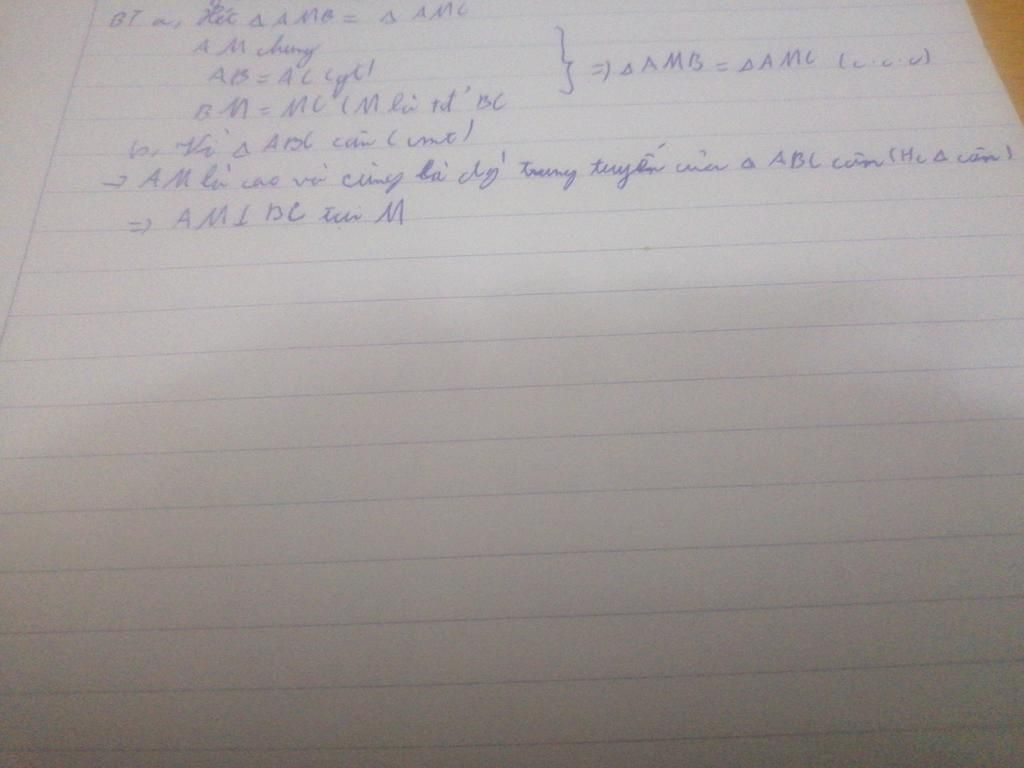 BT a, Xét △ AMB = △ AMC
AM chung
AB = AC (gt)
BM = MC (M là tđ' BC
=> △ AMB = △ AMC (c.c.c)
b, Vì △ ABC cân (cmt)
→ AM là cao và cũng là trung tuyến của △ ABC cân (Hc △ cân)
=> AM ⊥ BC tại M